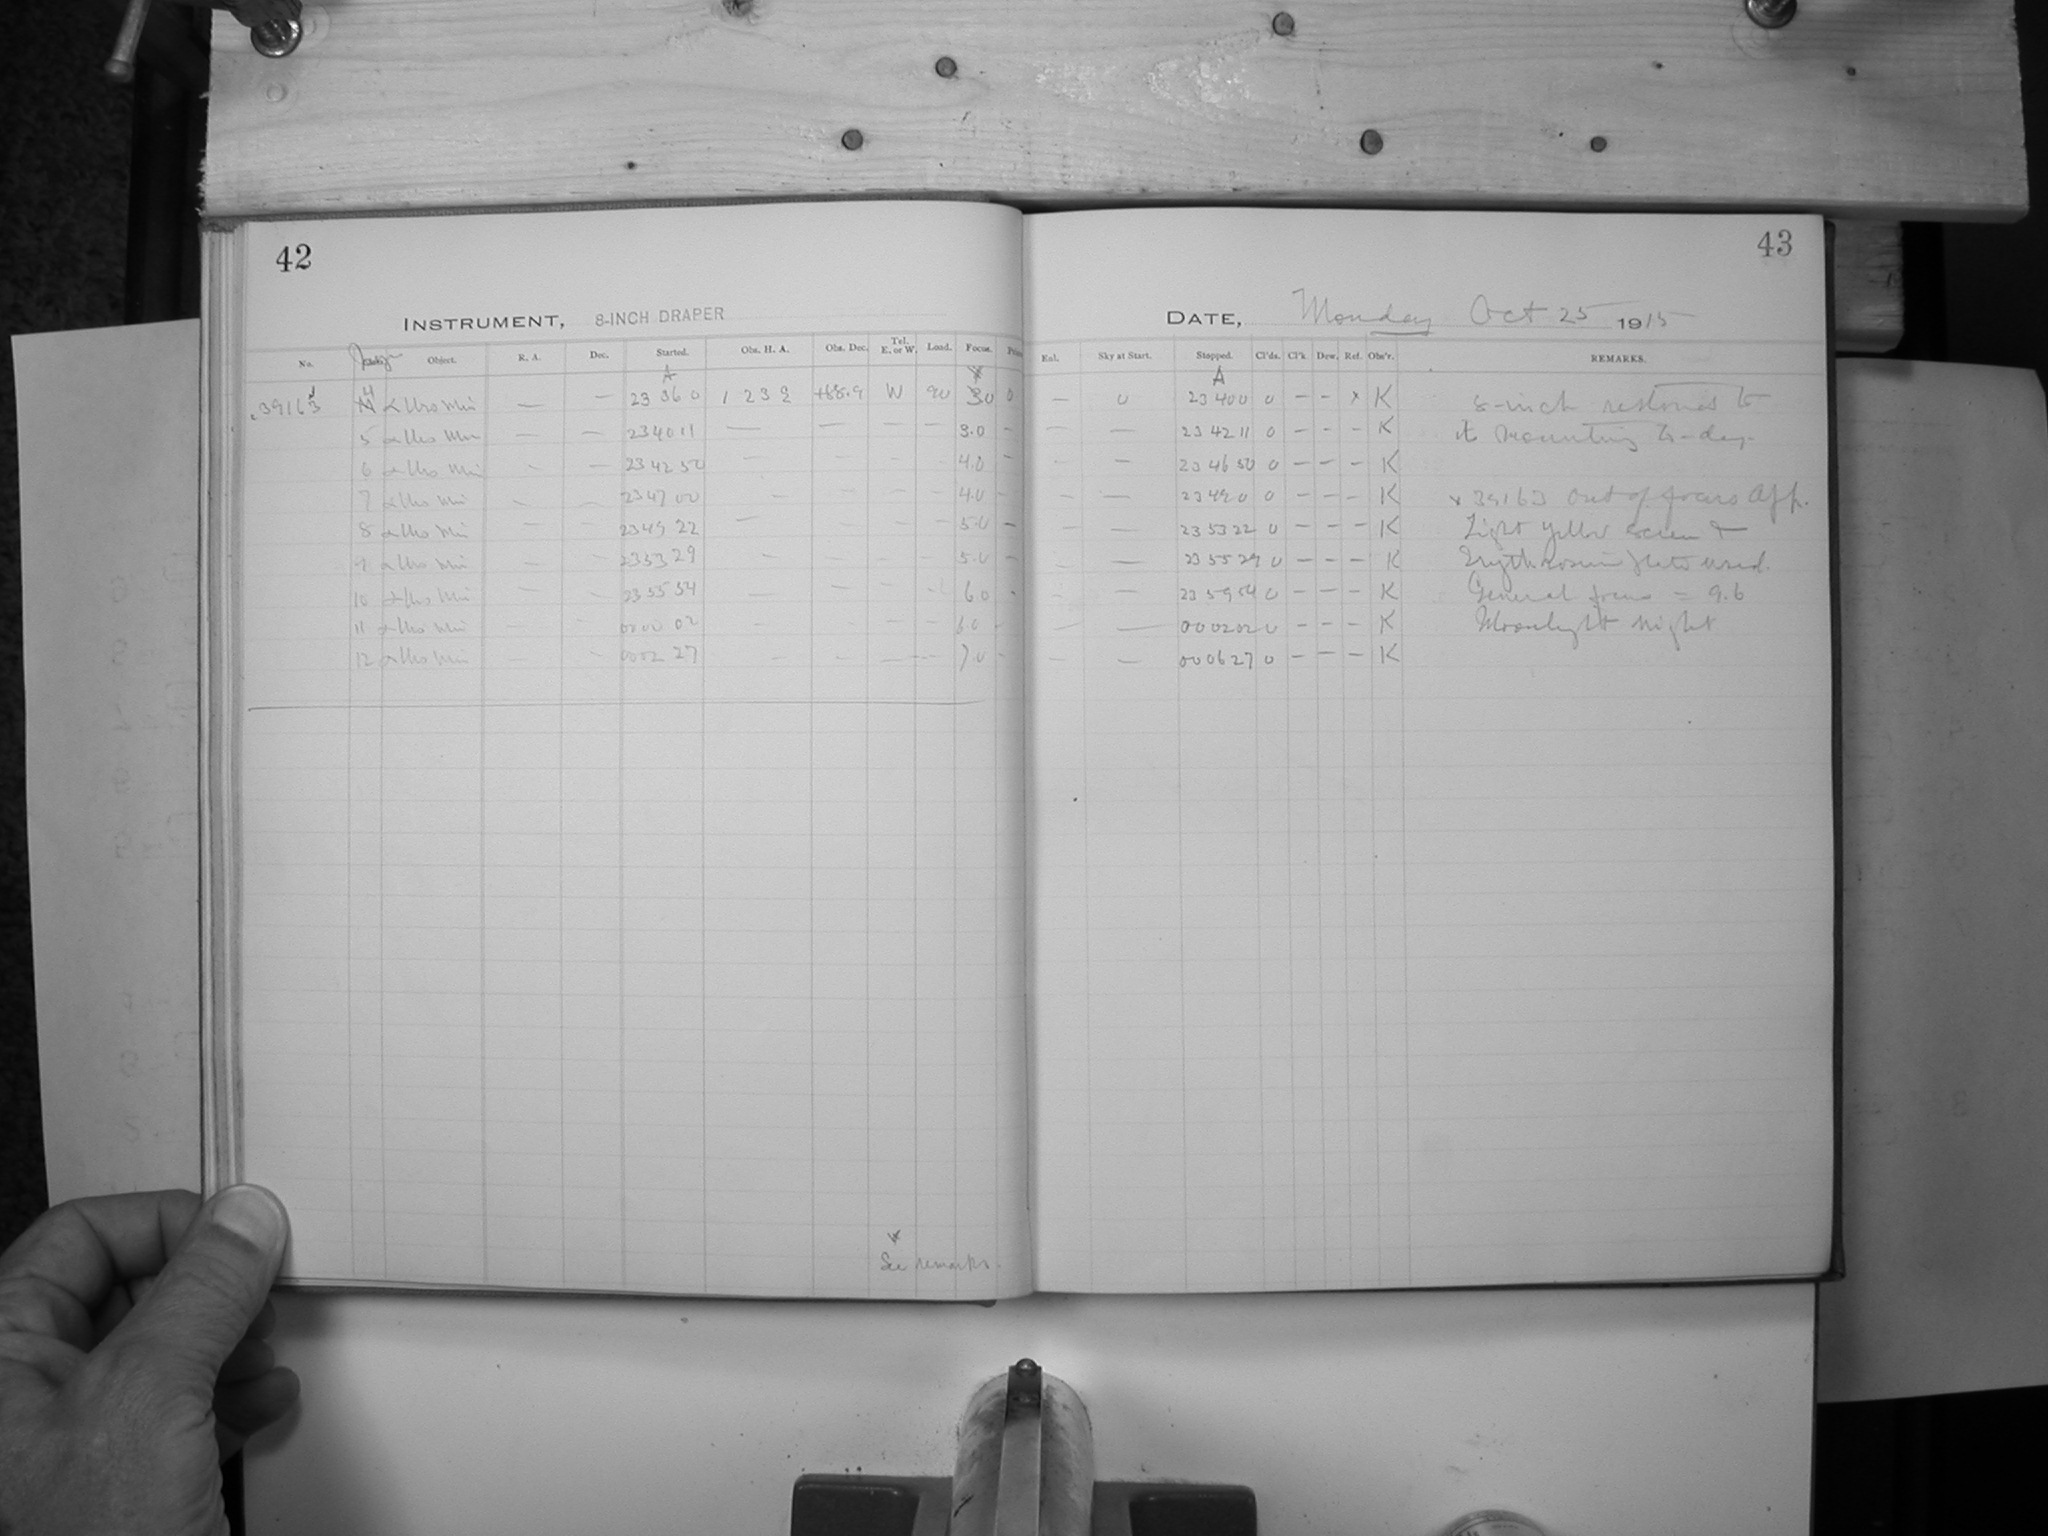 42
INSTRUMENT, 8-INCH DRAPER
No. Object. R. A. Dec. Started. Obs. H. A. Obs. Dec. Tel. E. or W. Load. Focus.
A
39163 4 α Urs Min — — 23 36 0 1 23 2 +88.9 W 90 3.0 0
5 α Urs Min — — 23 40 11 — — — — 3.0 -
6 α Urs Min - — 23 42 50 — — — — 4.0 -
7 α Urs Min - — 23 47 00 - — — - 4.0 -
8 α Urs Min - - 23 49 22 — - - - 5.0 -
9 α Urs Min - - 23 53 29 - - - - 5.0 -
10 α Urs Min - - 23 55 54 — — - - 6.0 -
11 α Urs Min - - 00 00 02 - - - - 6.0 -
12 α Urs Min - 00 02 27 - - — — 7.0 -
See remarks.
43
DATE, Monday Oct 25 1915
Exl. Sky at Start. Stopped. Cl'ds. Cl'k Dew. Ref. Obs'r. REMARKS.
A
— 0 23 40 0 0 - - x K 8-inch restored to
— — 23 42 11 0 - - - K its mounting to-day.
- — 23 46 50 0 - - - K
- — 23 49 0 0 - - - K x 39163 out of focus App.
- — 23 53 22 0 - - - K Light yellow screen &
- — 23 55 29 0 - - - K Erythrosin plate used.
- — 23 59 54 0 - - - K General focus = 9.6
- — 00 02 02 0 - - - K Moonlight night
- — 00 06 27 0 - - - K